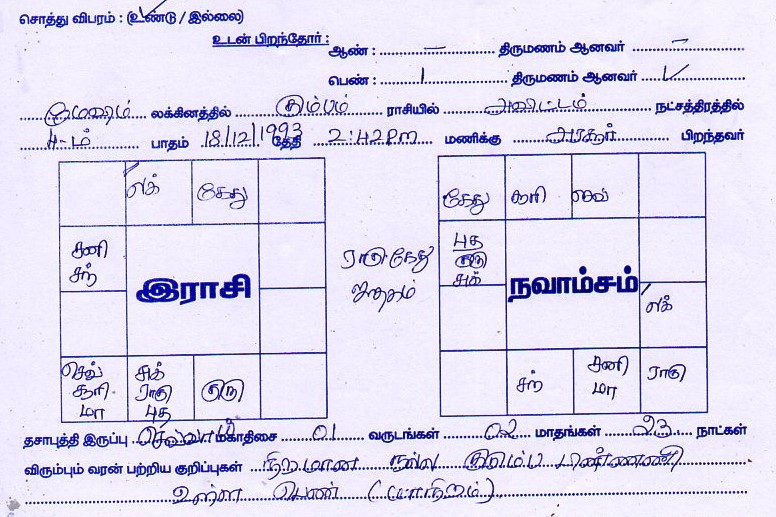 சொத்து விபரம் : (உண்டு / இல்லை)
உடன் பிறந்தோர் :
ஆண் : – திருமணம் ஆனவர் –
பெண் : 1 திருமணம் ஆனவர் ✓
மேஷம் லக்கினத்தில் கும்பம் ராசியில் அவிட்டம் நட்சத்திரத்தில்
4-ம் பாதம் 18/12/1993 தேதி 2:42 PM மணிக்கு பிறந்தவர்
லக் கேது
கேது சூரி செவ்
சனி சந்
புத குரு சுக்
ராகு கேது ஜாதகம்
இராசி
நவாம்சம்
லக்
செவ் சூரி மா
சுக் ராகு புத
குரு
சந்
சனி மா
ராகு
தசாபுத்தி இருப்பு செவ்வாய் மகாதிசை 01 வருடங்கள் 02 மாதங்கள் 23 நாட்கள்
விரும்பும் வரன் பற்றிய குறிப்புகள் நிறமான நல்ல குடும்ப பின்னணி
உள்ள பெண் (மாநிறம்)